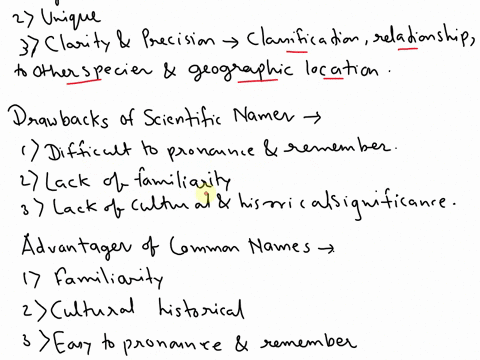 2) Unique
3) Clarity & Precision → Classification, relationship,
to other species & geographic location.
Drawbacks of Scientific Names →
1) Difficult to pronounce & remember.
2) Lack of familiarity
3) Lack of Cultural & historical Significance.
Advantages of Common Names →
1) Familiarity
2) Cultural historical
3) Easy to pronounce & remember